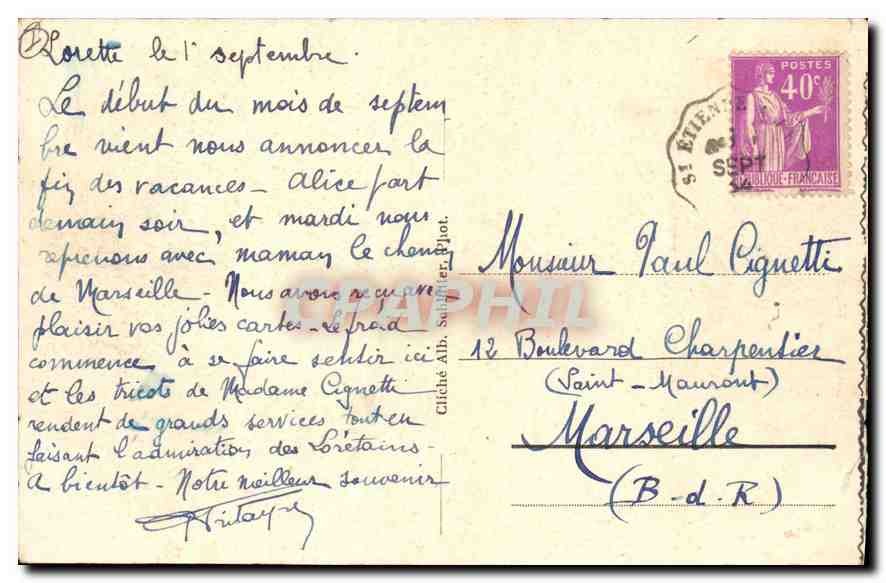 Lorette le 1er septembre.
Le début du mois de septem
bre vient nous annoncer la
fin des vacances - Alice part
demain soir, et mardi nous
reprenons avec maman le chemin
de Marseille - Nous avons reçu avec
plaisir vos jolies cartes - Le froid
commence à se faire sentir ici
et les tricots de Madame Cignetti
rendent de grands services tout en
faisant l'admiration des Lorétains -
A bientôt - Notre meilleur souvenir
Cliché Alb. Phot.
CPAPHIL
POSTES
40c
REPUBLIQUE-FRANÇAISE
ST ETIENNE
SEPT
34
Monsieur Paul Cignetti
12 Boulevard Charpentier
(Saint-Mauront)
Marseille
(B-d-R)